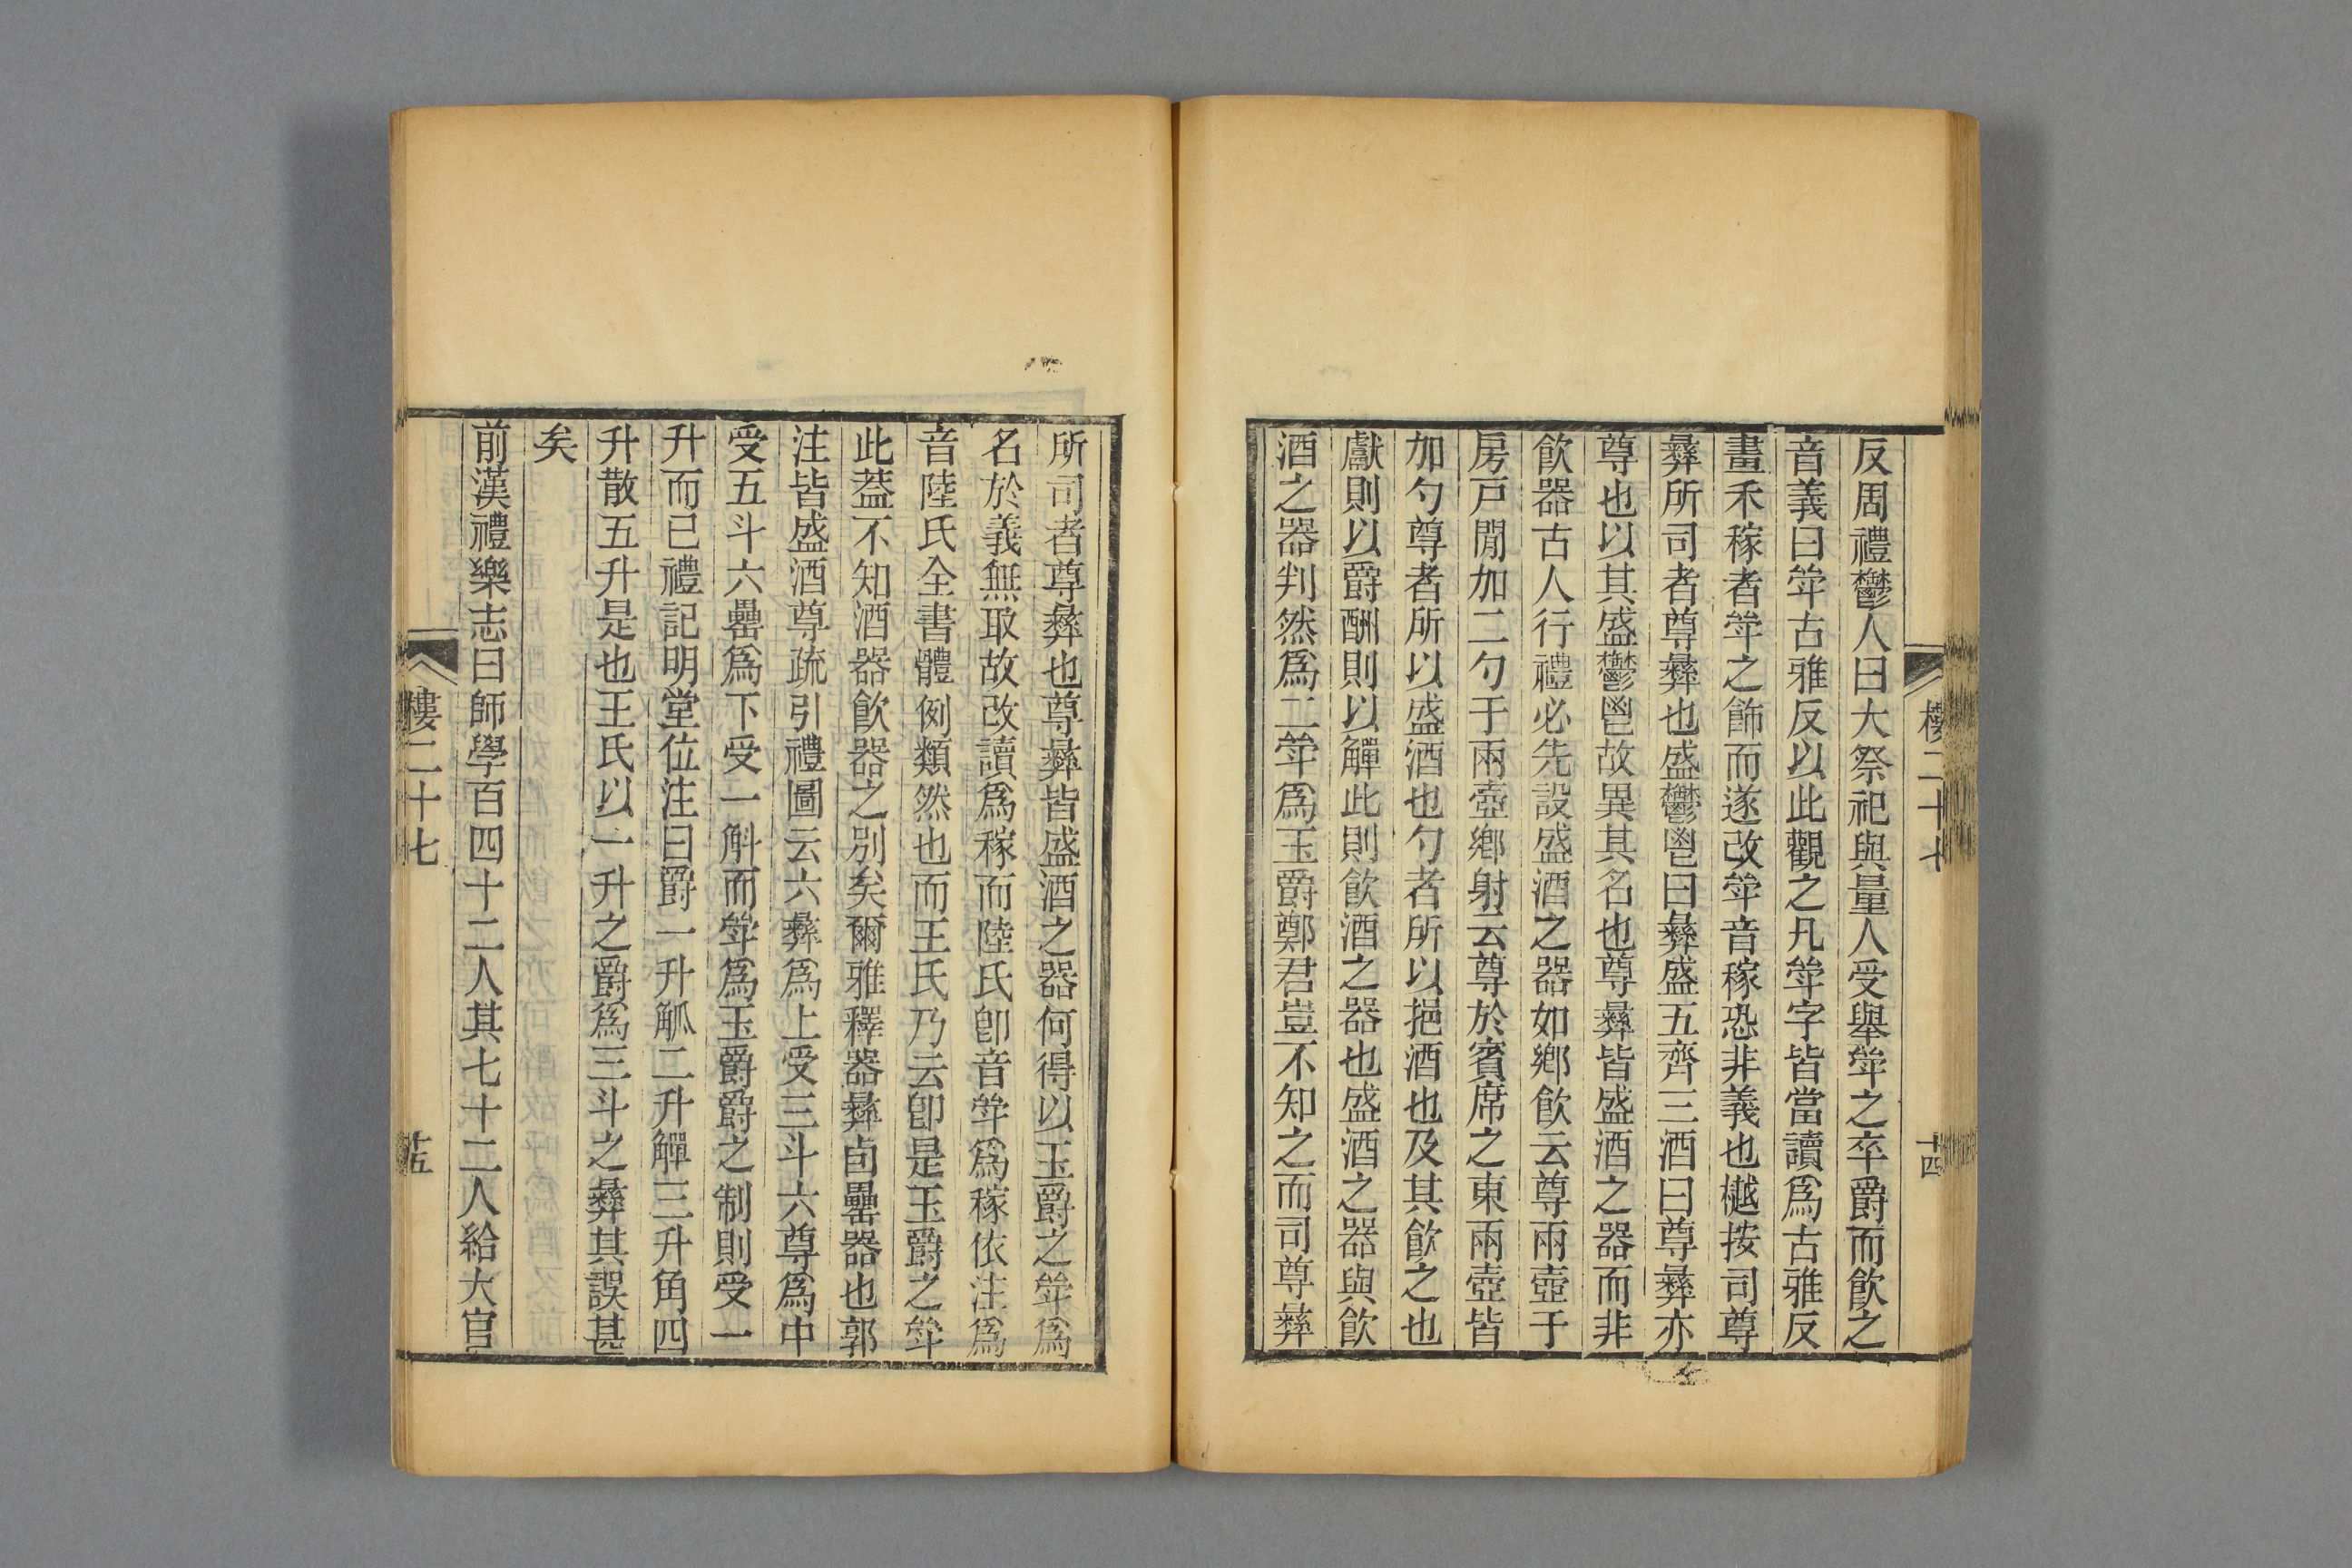 樓二十七
十四
反周禮鬱人曰大祭祀與量人受舉斝之卒爵而飮之
音義曰斝古雅反以此觀之凡斝字皆當讀爲古雅反
畫禾稼者斝之飾而遂改斝音稼恐非義也樾按司尊
彝所司者尊彝也盛鬱鬯曰彝盛五齊三酒曰尊彝亦
尊也以其盛鬱鬯故異其名也尊彝皆盛酒之器而非
飮器古人行禮必先設盛酒之器如鄉飮云尊兩壺于
房戸閒加二勺于兩壺鄉射云尊於賓席之東兩壺皆
加勺尊者所以盛酒也勺者所以挹酒也及其飮之也
獻則以爵酬則以觶此則飮酒之器也盛酒之器與飮
酒之器判然爲二斝爲玉爵鄭君豈不知之而司尊彝
所司者尊彝也尊彝皆盛酒之器何得以玉爵之斝爲
名於義無取故改讀爲稼而陸氏卽音斝爲稼依注爲
音陸氏全書體例類然也而王氏乃云卽是玉爵之斝
此葢不知酒器飮器之別矣爾雅釋器彝卣罍器也郭
注皆盛酒尊疏引禮圖云六彝爲上受三斗六尊爲中
受五斗六罍爲下受一斛而斝爲玉爵爵之制則受一
升而已禮記明堂位注曰爵一升觚二升觶三升角四
升散五升是也王氏以一升之爵爲三斗之彝其誤甚
矣
前漢禮樂志曰師學百四十二人其七十二人給大官
樓二十七
十五